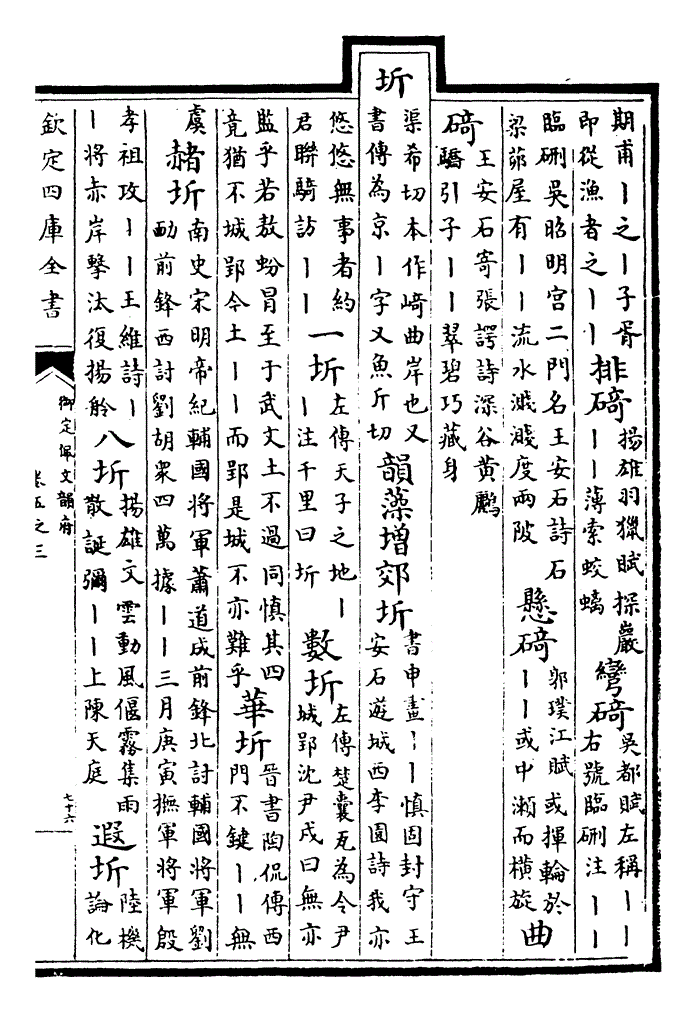 圻
期甫丨之丨子胥
即從漁者之丨丨
排碕
揚雄羽獵賦探巖
丨丨薄索蛟螭
彎碕
吳都賦左稱丨丨
右號臨硎注丨丨
臨硎吳昭明宫二門名王安石詩石
梁茆屋有丨丨流水濺濺度兩陂
懸碕
郭璞江賦或揮輪於
丨丨或中瀬而橫旋
曲
碕
王安石寄張諤詩深谷黄鸝
驕引子丨丨翠碧巧藏身
渠希切本作﨑曲岸也又
書傳為京丨字又魚斤切
韻藻增郊圻
書申畫丨丨慎固封守王
安石遊城西李園詩我亦
悠悠無事者約
君聯騎訪丨丨
一圻
左傳天子之地丨
丨注千里曰圻
數圻
左傳楚囊瓦為令尹
城郢沈尹戍曰無亦
監乎若敖蚡冒至于武文土不過同慎其四
竟猶不城郢今土丨丨而郢是城不亦難乎
華圻
晉書陶侃傳西
門不鍵丨丨無
虞
赭圻
南史宋明帝紀輔國將軍蕭道成前鋒北討輔國將軍劉
勔前鋒西討劉胡衆四萬據丨丨三月庚寅撫軍將軍殷
孝祖攻丨丨王維詩丨
丨將赤岸擊汰復揚舲
八圻
揚雄文雲動風偃霧集雨
散誕彌丨丨上陳天庭
遐圻
陸機
論化
欽定四庫全書
御定佩文韻府
卷五之三
七十六